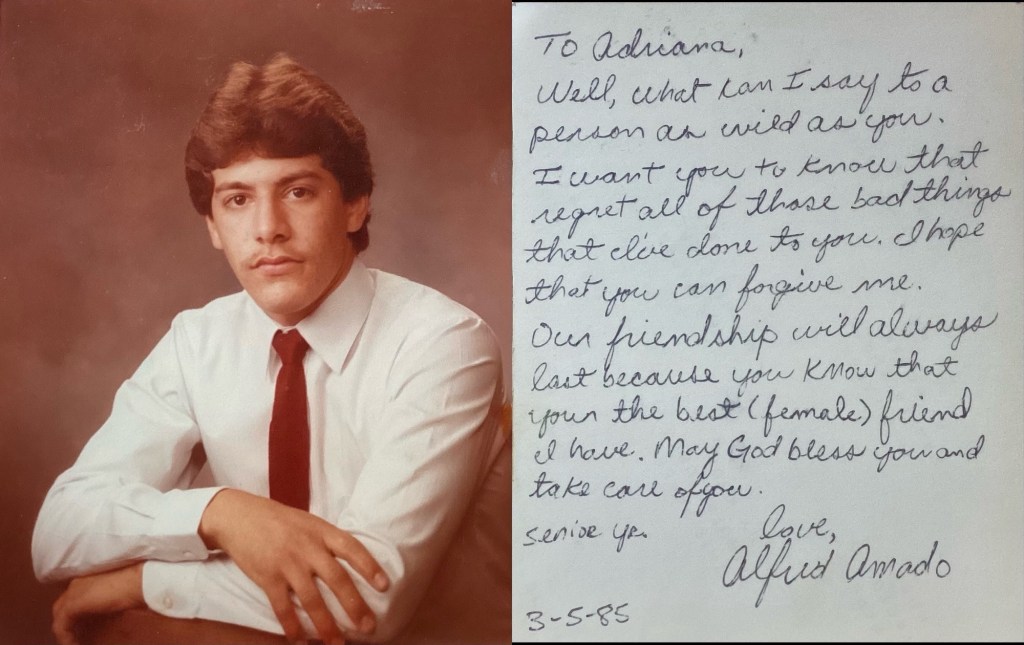 To Adriana,
Well, what can I say to a
person as wild as you.
I want you to know that
regret all of those bad things
that I've done to you. I hope
that you can forgive me.
Our friendship will always
last because you know that
your the best (female) friend
I have. May God bless you and
take care of you.
senior yr.
love,
Alfred Amado
3-5-85